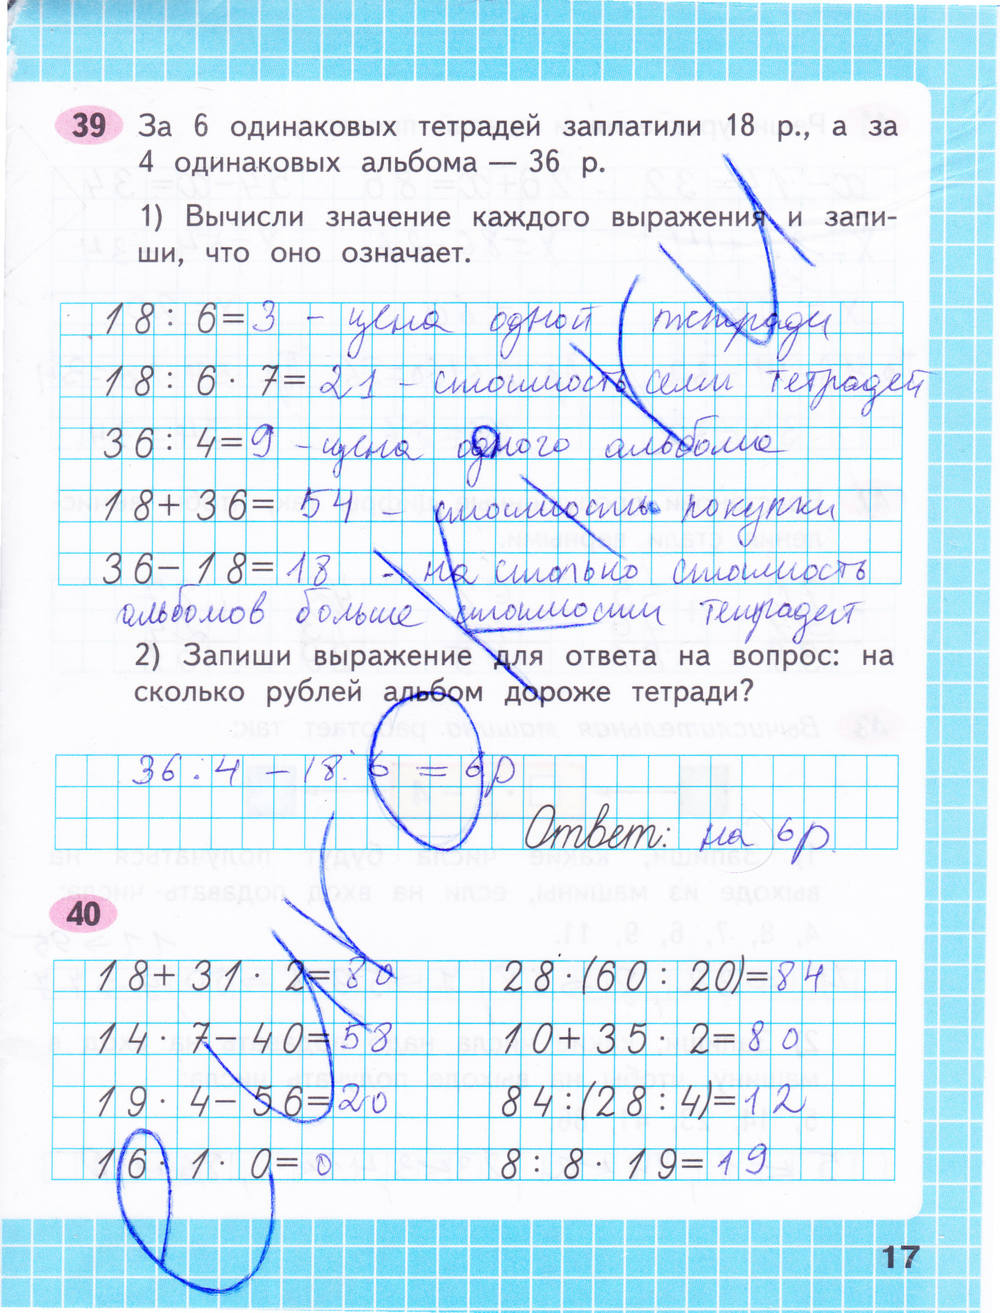 39 За 6 одинаковых тетрадей заплатили 18 р., а за
4 одинаковых альбома — 36 р.
1) Вычисли значение каждого выражения и запи-
ши, что оно означает.
18 : 6 = 3 - цена одной тетради
18 : 6 · 7 = 21 - стоимость семи тетрадей
36 : 4 = 9 - цена одного альбома
18 + 36 = 54 стоимость покупки
36 - 18 = 18 - на столько стоимость
альбомов больше стоимости тетрадей
2) Запиши выражение для ответа на вопрос: на
сколько рублей альбом дороже тетради?
36 : 4 - 18 : 6 = 6 р
Ответ: на 6 р.
40
18 + 31 · 2 = 80 28 · (60 : 20) = 84
14 · 7 - 40 = 58 10 + 35 · 2 = 80
19 · 4 - 56 = 20 84 : (28 : 4) = 12
16 · 1 · 0 = 0 8 : 8 · 19 = 19
17